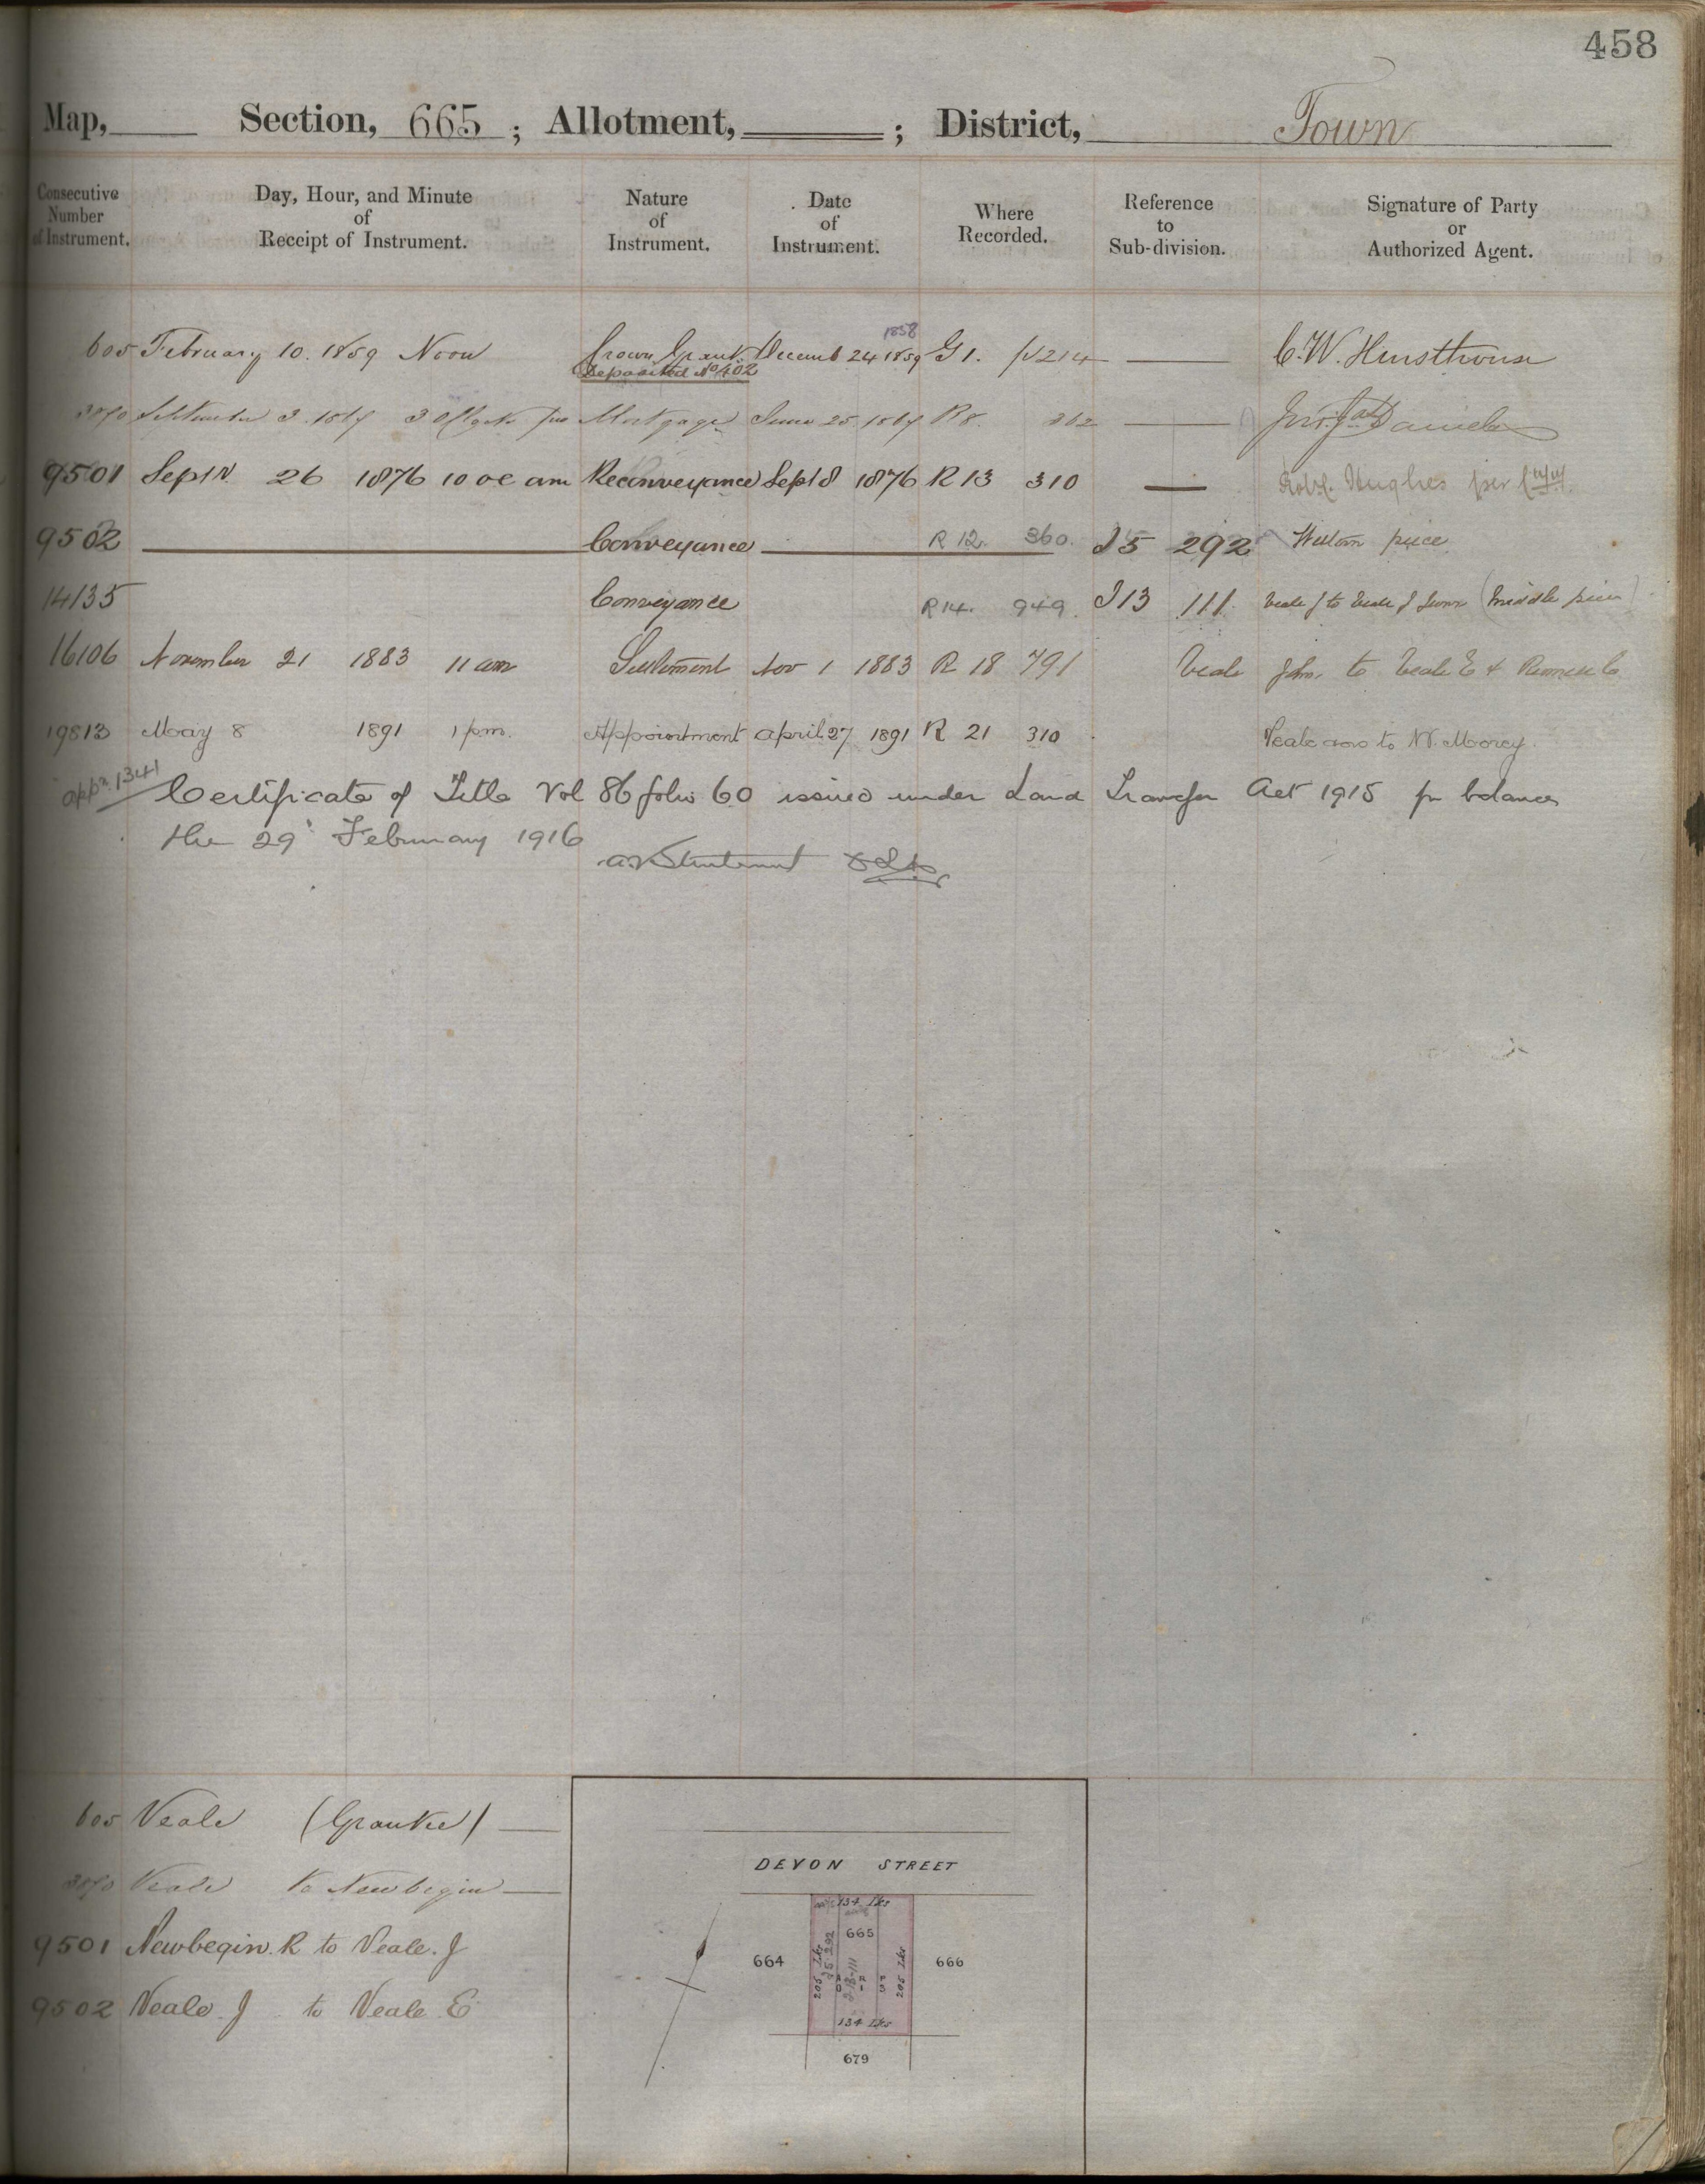 458
Map, Section, 665 ; Allotment, ; District, Town
Consecutive Number of Instrument. Day, Hour, and Minute of Receipt of Instrument. Nature of Instrument. Date of Instrument. Where Recorded. Reference to Sub-division. Signature of Party or Authorized Agent.
1858
605 February 10. 1859 Noon Crown Grant Decemb 24 1859 G 1. p 214 C. W. Hursthouse
Deposited No 402
September 3. 1867 3 Mortgage June 25. 1867 R 8. 262 Daniel
9501 Septr. 26 1876 10 oc am Reconveyance Sept 8 1876 R 13 310 Robt. Hughes per
9502 Conveyance R 12. 360. I 5 292 Western piece
14135 Conveyance R 14. 949. I 13 111. Veale J to Veale J Junr (Middle piece)
16106 November 21 1883 11 am Settlement Nov 1 1883 R 18 791 Veale John, to Veale E &
19813 May 8 1891 1 p.m. Appointment April 27 1891 R 21 310 Veale to W. Morey.
appn 1341 Certificate of Title Vol 86 folio 60 issued under Land Transfer Act 1915 for balance
the 29 February 1916
605 Veale (Grantee)
Veale to Newbegin
9501 Newbegin. R to Veale. J
9502 Veale. J to Veale. E
DEVON STREET
134 Lks
665
664 205 Lks I 5·292 I 13-111 205 Lks 666
134 Lks
679